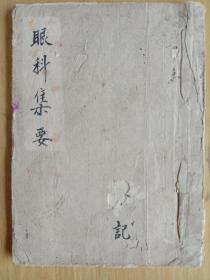 眼科集要
記